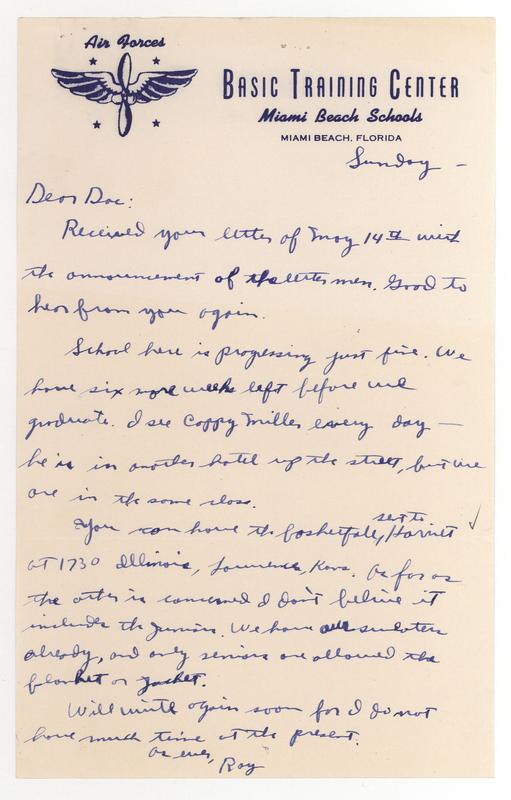 Air Forces
BASIC TRAINING CENTER
Miami Beach Schools
MIAMI BEACH, FLORIDA
Sunday –
Dear Doc:
Received your letter of May 14th with
the announcement of the lettermen. Good to
hear from you again.
School here is progressing just fine. We
have six more weeks left before we
graduate. I see Cappy Miller every day –
he is in another hotel up the street, but we
are in the same class.
You can have the basketball, sent to Harriet
at 1730 Illinois, Lawrence, Kans. As far as
the other is concerned I don't believe it
includes the juniors. We have our sweaters
already, and only seniors are allowed the
blanket or jacket.
Will write again soon for I do not
have much time at the present.
As ever,
Roy